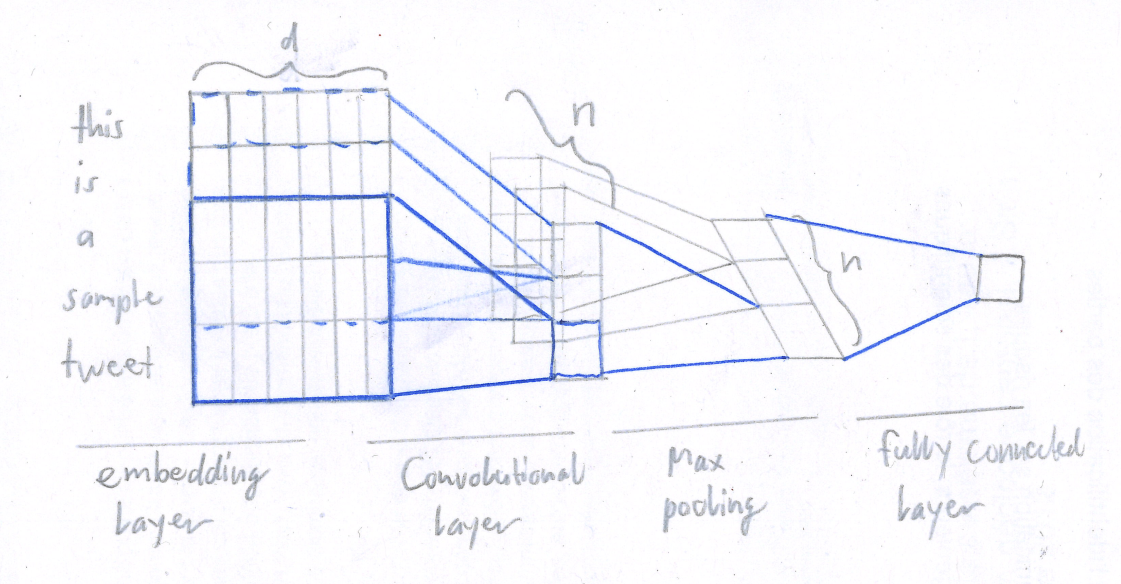 d
n
this
is
a
sample
tweet
n
embedding
layer
Convolutional
layer
Max
pooling
fully connected
layer